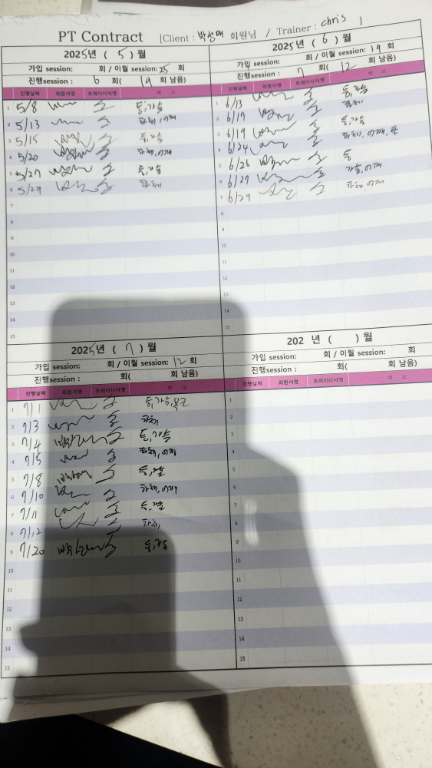 PT Contract [Client : 박성애 회원님 / Trainer : chris ]
2025년 ( 5 ) 월
가입 session: 회 / 이월 session: 25 회
진행session : 6 회( 19 회 남음)
진행날짜 회원서명 트레이너서명 비 고
1 5/8 등,가슴
2 5/13 하체,어깨
3 5/15 등,가슴
4 5/20 하체,어깨
5 5/27 등,가슴
6 5/29 하체
7
8
9
10
11
12
13
14
15
2025년 ( 6 ) 월
가입 session: 회 / 이월 session: 19 회
진행session : 7 회( 12 회 남음)
진행날짜 회원서명 트레이너서명 비 고
1 6/13 등,가슴
2 6/17 하체
3 6/19 등,가슴
4 6/24 하체,어깨
5 6/26 등
6 6/27 가슴,어깨
7 6/29 하체,어깨
8
9
10
11
12
13
14
15
2025년 ( 7 ) 월
가입 session: 회 / 이월 session: 12 회
진행session : 회( 회 남음)
진행날짜 회원서명 트레이너서명 비 고
1 7/1 등,가슴,복근
2 7/3 하체
3 7/4 등,가슴
4 7/5 하체,어깨
5 7/8 등,가슴
6 7/10 하체,어깨
7 7/11 등,가슴
8 7/12 하체
9 7/20 등,가슴
10
11
12
13
14
15
202 년 ( ) 월
가입 session: 회 / 이월 session: 회
진행session : 회( 회 남음)
진행날짜 회원서명 트레이너서명 비 고
1
2
3
4
5
6
7
8
9
10
11
12
13
14
15